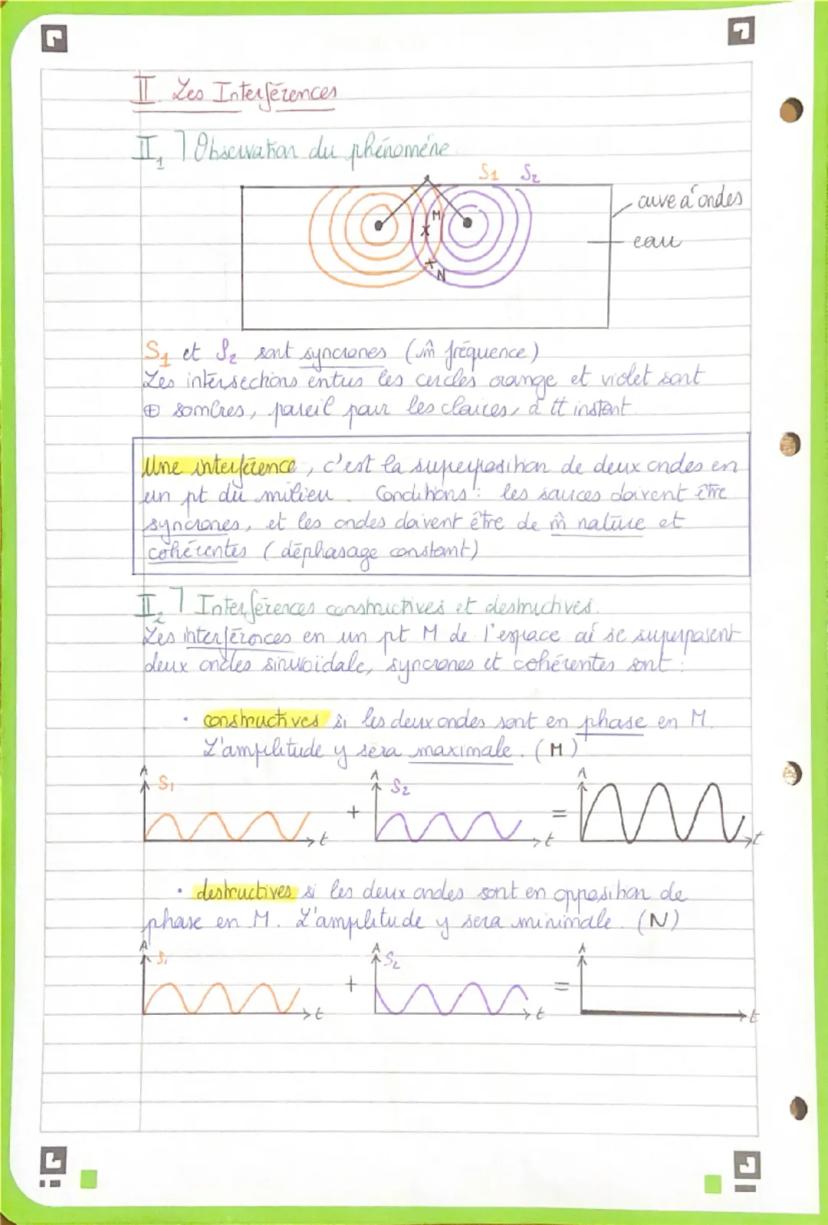 II Les Interférences
II₁ ⌉ Observation du phénomène
S₁ S₂
cuve à ondes
M
eau
N
S₁ et S₂ sont syncrones (m̂ fréquence)
Les intersections entres les cercles orange et violet sont
⊕ sombres, pareil pour les claires, à tt instant
Une interférence, c'est la superposition de deux ondes en
un pt du milieu. Conditions : les sources doivent être
syncrones, et les ondes doivent être de m̂ nature et
cohérentes (déphasage constant)
II₂ ⌉ Interférences constructives et destructives.
Les interférences en un pt M de l'espace où se superposent
deux ondes sinusoïdale, syncrones et cohérentes sont :
• constructives si les deux ondes sont en phase en M.
L'amplitude y sera maximale. (M)
A S₁ t + A S₂ t = A t
• destructives si les deux ondes sont en opposition de
phase en M. L'amplitude y sera minimale. (N)
A S₁ t + A S₂ t = A t